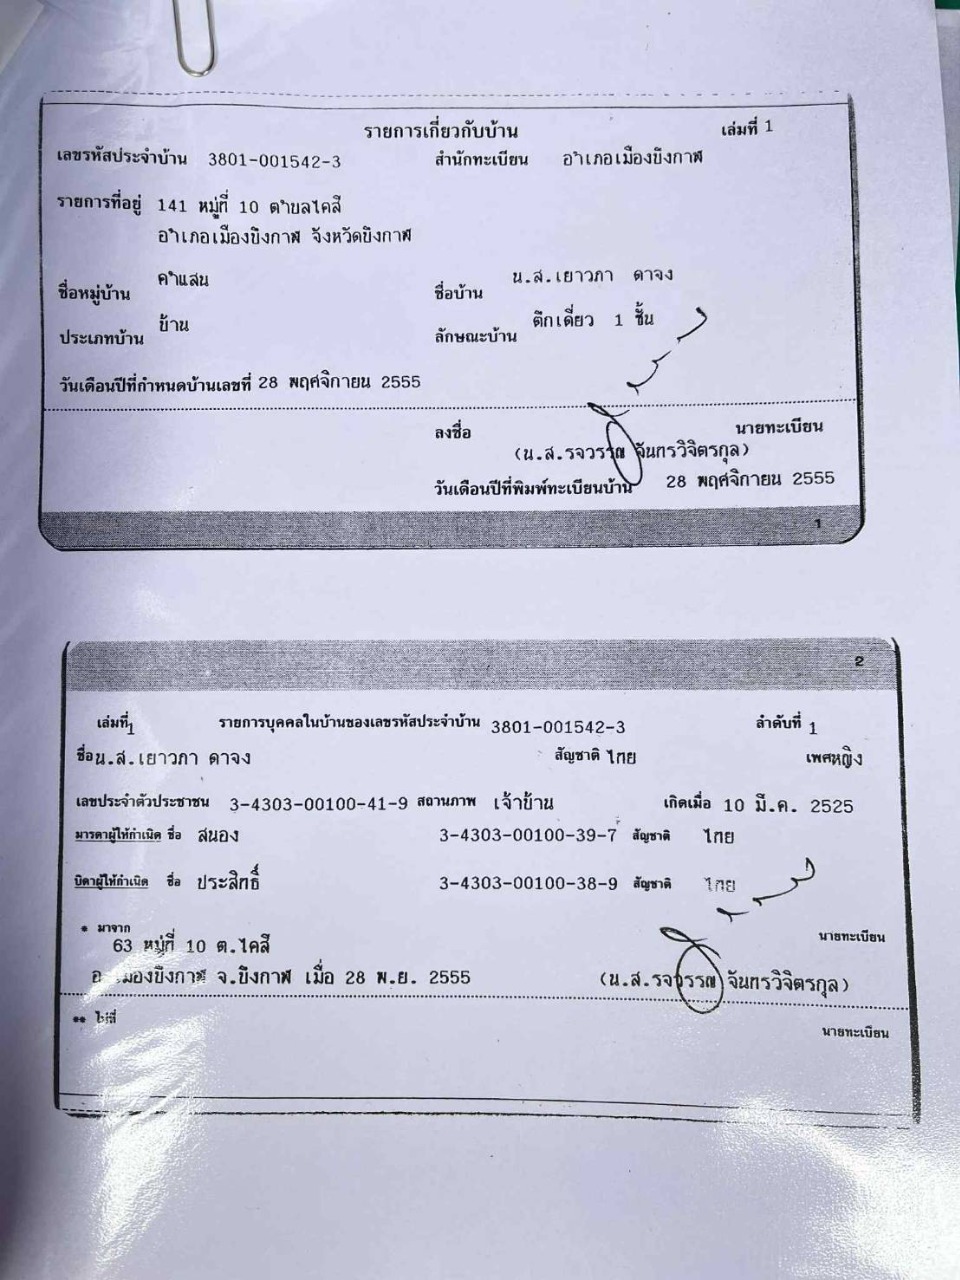 รายการเกี่ยวกับบ้าน เล่มที่ 1
เลขรหัสประจำบ้าน 3801-001542-3 สำนักทะเบียน อำเภอเมืองบึงกาฬ
รายการที่อยู่ 141 หมู่ที่ 10 ตำบลไคสี
อำเภอเมืองบึงกาฬ จังหวัดบึงกาฬ
ชื่อหมู่บ้าน คำแสน ชื่อบ้าน น.ส.เยาวภา ดาจง
ประเภทบ้าน บ้าน ลักษณะบ้าน ตึกเดี่ยว 1 ชั้น
วันเดือนปีที่กำหนดบ้านเลขที่ 28 พฤศจิกายน 2555
ลงชื่อ นายทะเบียน
(น.ส.รจวรรณ จันทรวิจิตรกุล)
วันเดือนปีที่พิมพ์ทะเบียนบ้าน 28 พฤศจิกายน 2555
1
2
เล่มที่ 1 รายการบุคคลในบ้านของเลขรหัสประจำบ้าน 3801-001542-3 ลำดับที่ 1
ชื่อ น.ส.เยาวภา ดาจง สัญชาติ ไทย เพศ หญิง
เลขประจำตัวประชาชน 3-4303-00100-41-9 สถานภาพ เจ้าบ้าน เกิดเมื่อ 10 มี.ค. 2525
มารดาผู้ให้กำเนิด ชื่อ สนอง 3-4303-00100-39-7 สัญชาติ ไทย
บิดาผู้ให้กำเนิด ชื่อ ประสิทธิ์ 3-4303-00100-38-9 สัญชาติ ไทย
* มาจาก
63 หมู่ที่ 10 ต.ไคสี นายทะเบียน
อ.เมืองบึงกาฬ จ.บึงกาฬ เมื่อ 28 พ.ย. 2555 (น.ส.รจวรรณ จันทรวิจิตรกุล)
** ไปที่
นายทะเบียน